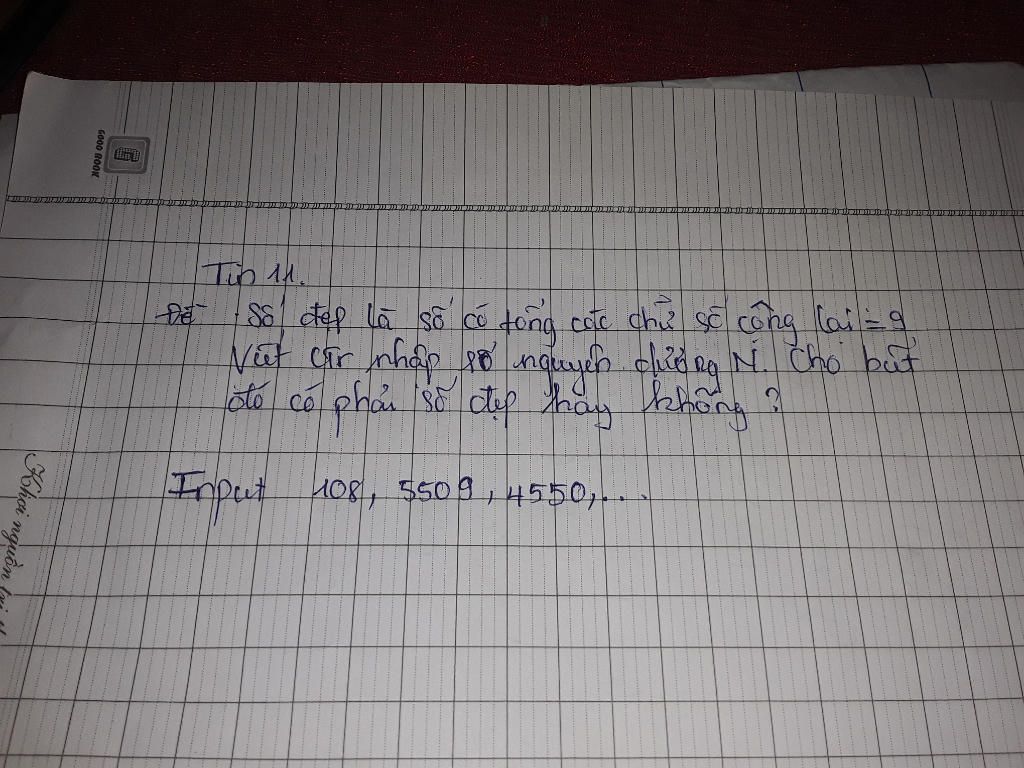 GOOD BOOK
Tin 11.
Đề Số đẹp là số có tổng các chữ số cộng lại = 9
Viết ctr nhập số nguyên dương N. Cho biết
đó có phải số đẹp hay không?
Input 108, 5509, 4550,...